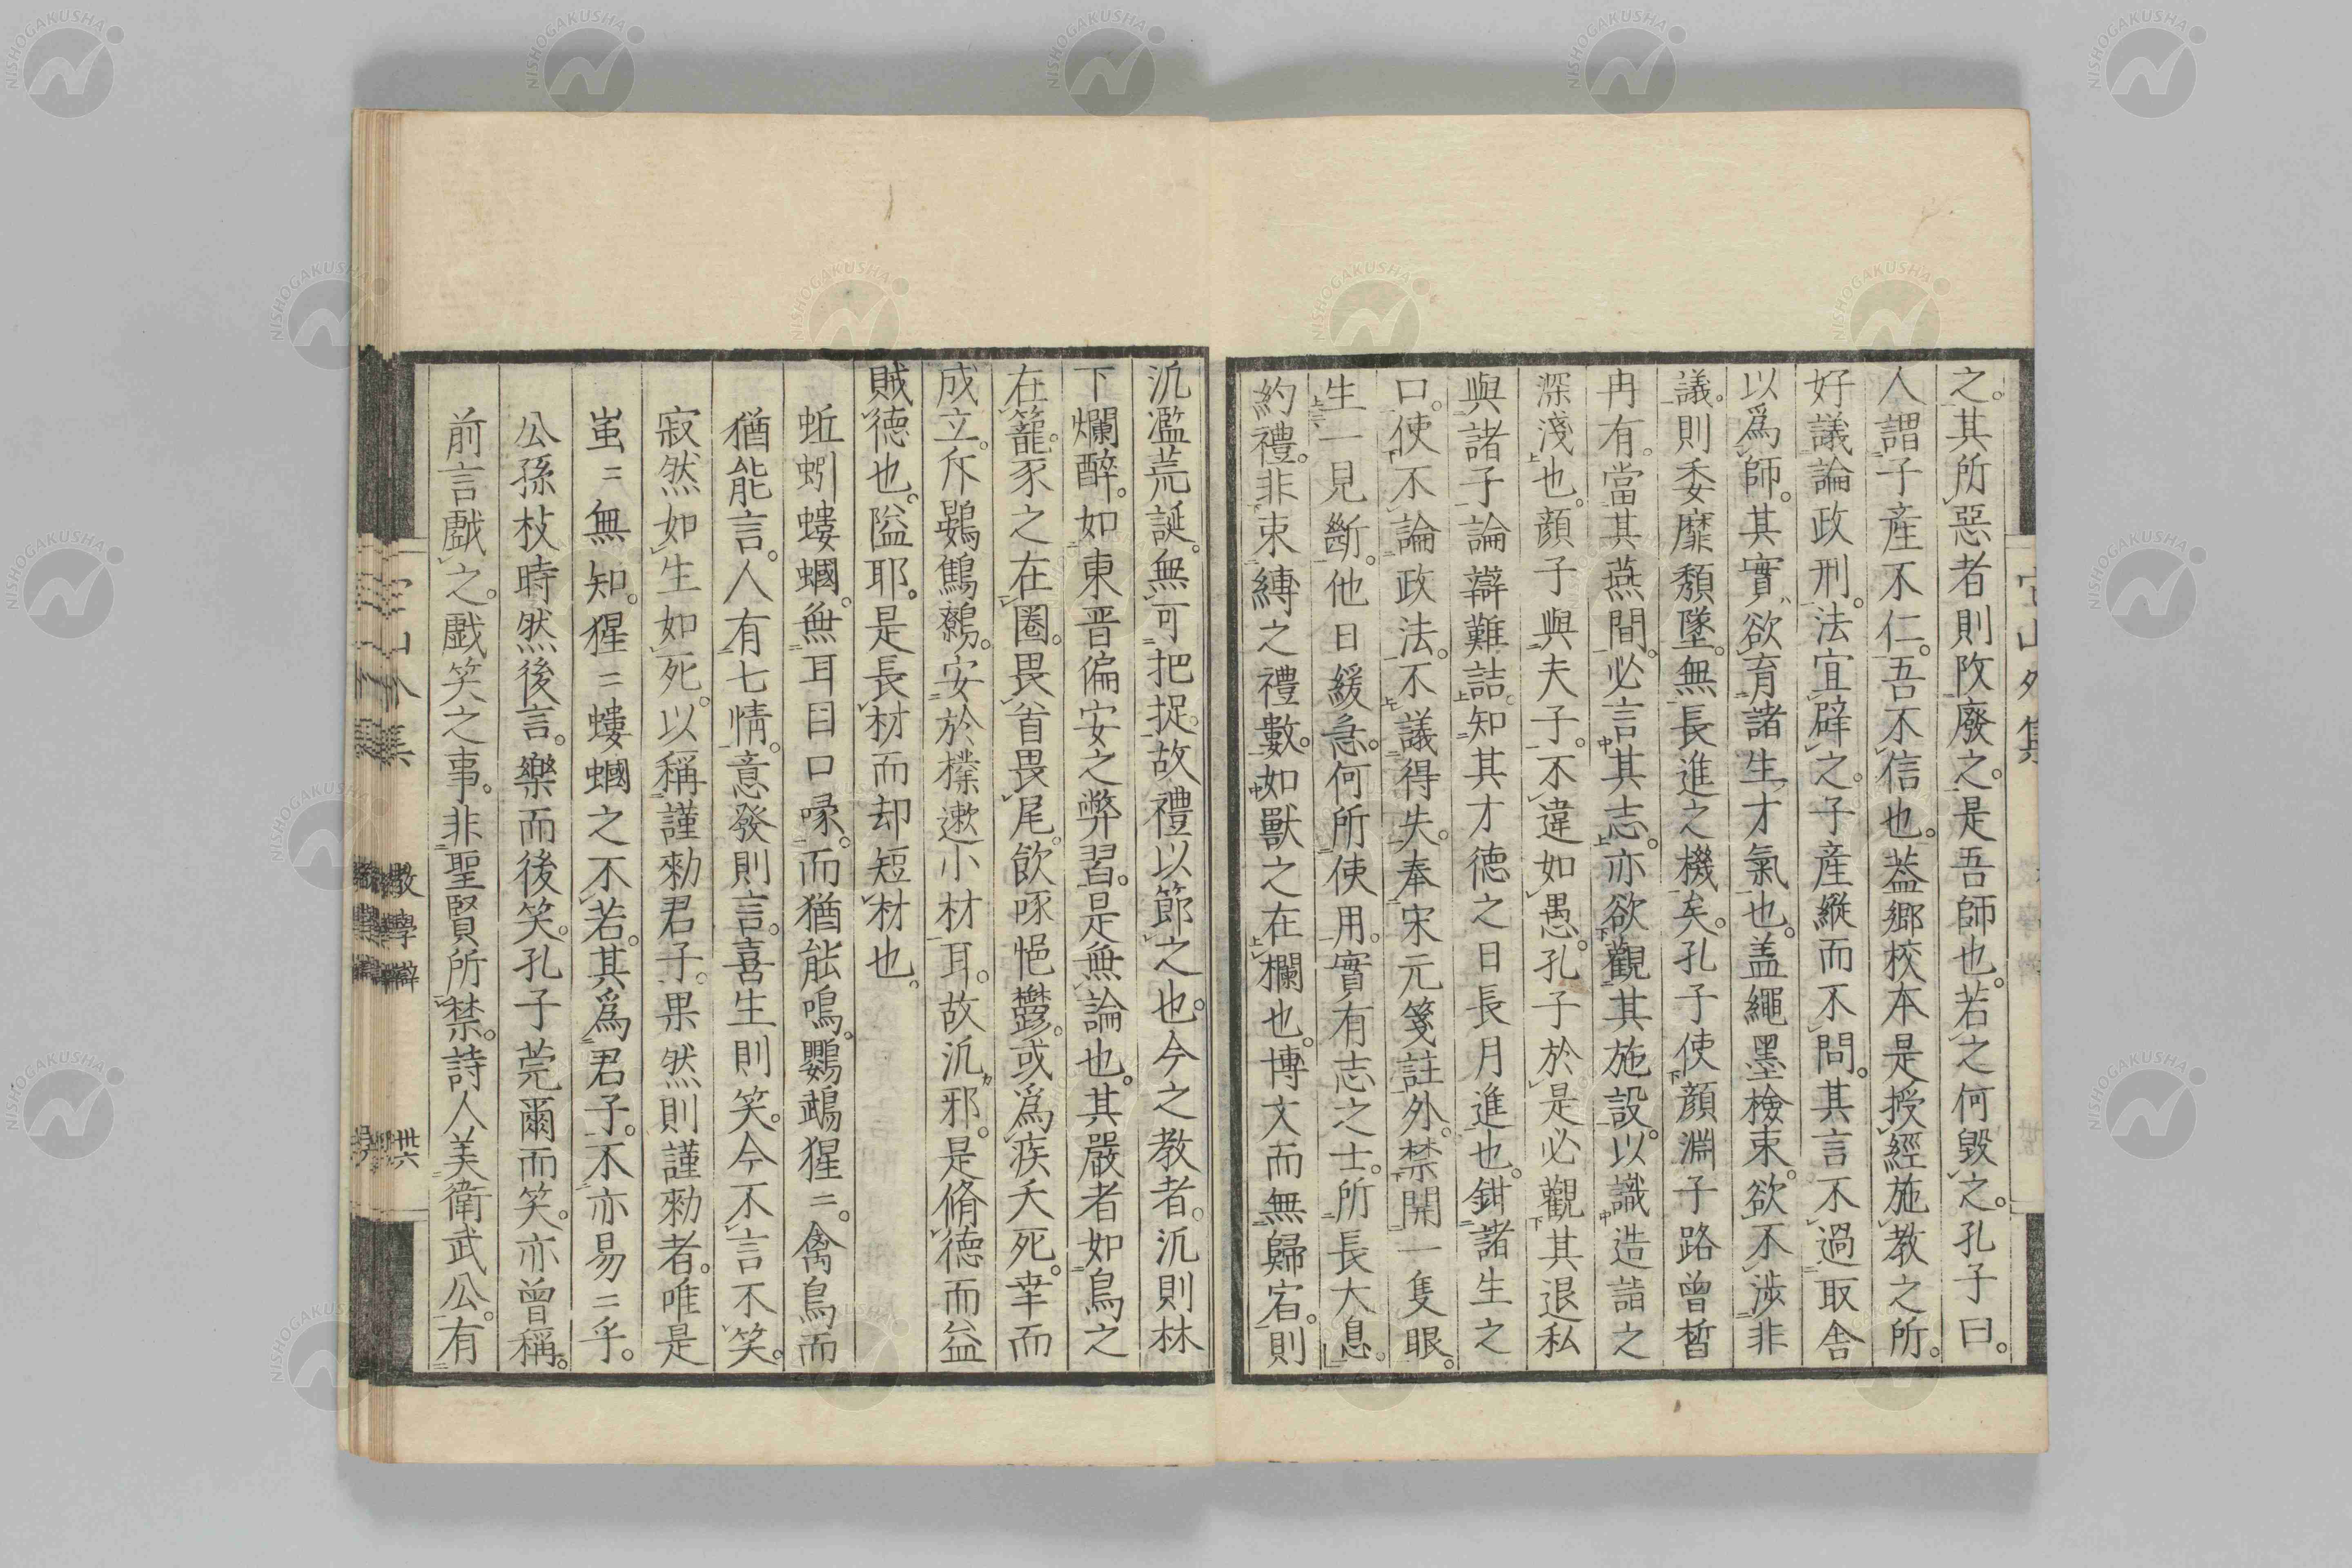 之。其所惡者則攺廢之。是吾師也。若之何毀之。孔子曰。
人謂子產不仁。吾不信也。葢鄉校本是授經施教之所。
好議論政刑。法宜辟之。子產縱而不問。其言不過取舍
以爲師。其實欲育諸生才氣也。盖繩墨檢束。欲不涉非
議。則委靡頹墜。無長進之機矣。孔子使顔淵子路曾晳
冉有。當其燕間。必言其志。亦欲觀其施設。以識造詣之
深淺也。顔子與夫子。不違如愚。孔子於是必觀其退私
與諸子論辯難詰。知其才德之日長月進也。鉗諸生之
口。使不論政法。不議得失。奉宋元箋註外。禁開一隻眼。
生一見斷。他日緩急。何所使用。實有志之士。所長大息。
約禮。非束縛之禮數。如獸之在欄也。博文而無歸宿。則
汎濫荒誕。無可把捉。故禮以節之也。今之教者。汎則林
下爛醉。如東晋偏安之弊習。是無論也。其嚴者如鳥之
在籠。豕之在圈。畏首畏尾。飲啄悒鬱。或爲疾夭死。幸而
成立。斥鷃鷦鷯。安於樸遬小材耳。故汎邪。是脩德而益
賊德也。隘耶。是長材而却短材也。
蚯蚓螻蟈。無耳目口喙。而猶能鳴。鸚鵡猩〻。禽鳥而
猶能言。人有七情。意發則言。喜生則笑。今不言不笑。
寂然如生如死。以稱謹勑君子。果然則謹勑者。唯是
蚩〻無知。猩〻螻蟈之不若。其爲君子。不亦易〻乎。
公孫枝時然後言。樂而後笑。孔子莞爾而笑。亦曾稱。
前言戲之。戲笑之事。非聖賢所禁。詩人美衛武公。有
教學辯
卅六